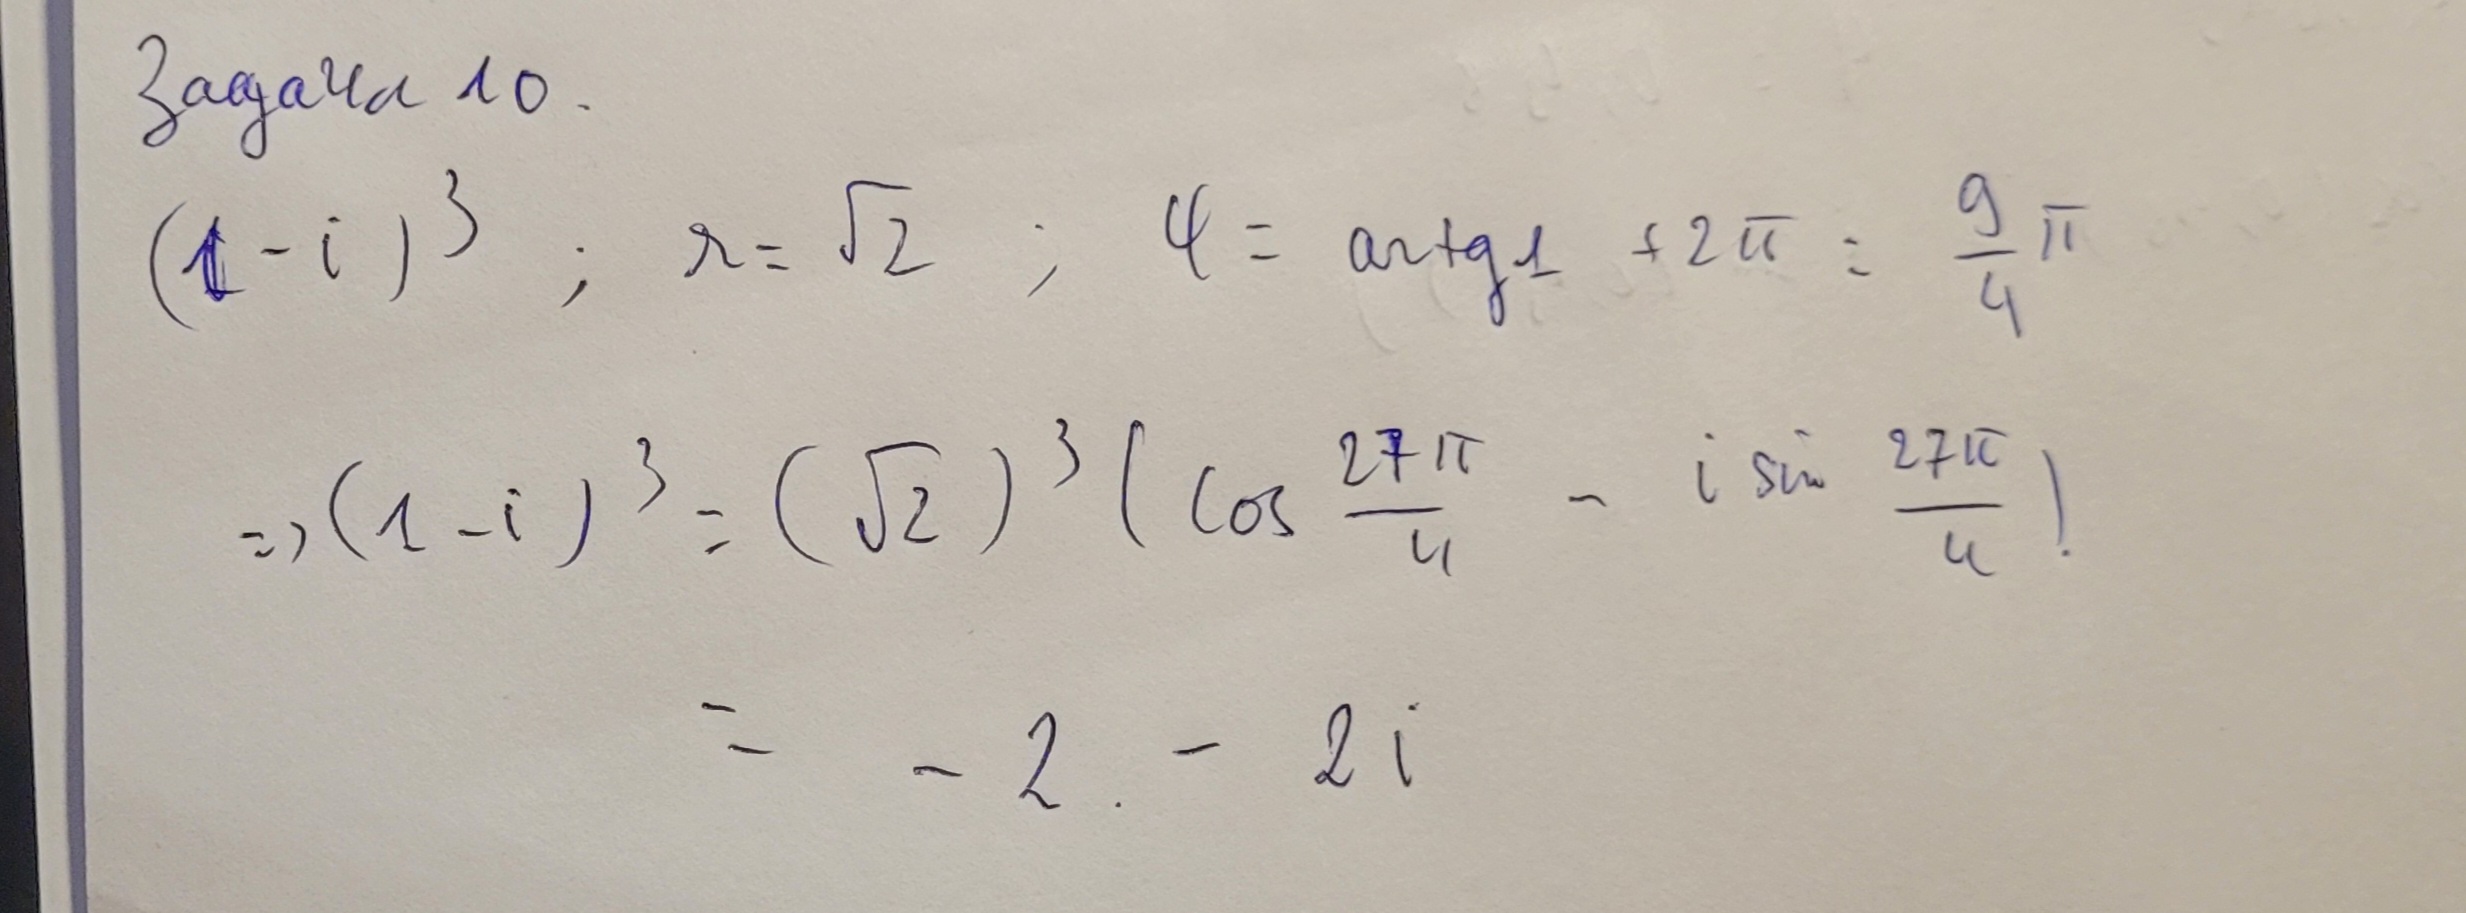 Задача 10.
(1-i)³ ; r = √2 ; φ = artg1 + 2π = 9/4 π
=> (1-i)³ = (√2)³ (cos 27π/4 - i sin 27π/4)
= -2. - 2i